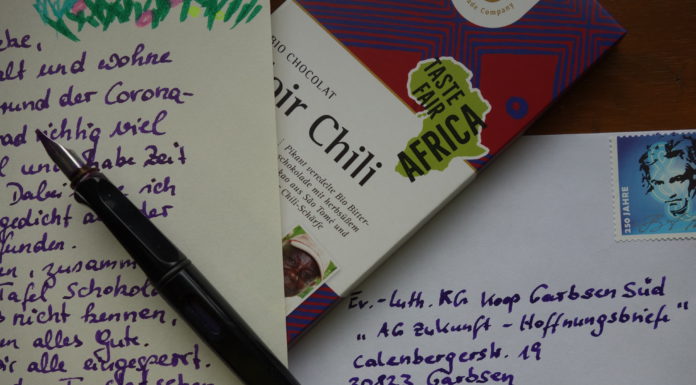 ebe,
alt und wohne
rund der Corona-
rad richtig viel
l und habe Zeit
Dabei ich
gedicht aus der
funden.
en, zusamm
Tafel Schokola
s nicht kennen,
en alles Gute.
ir alle eingesperrt.
BIO CHOCOLAT
oir Chili
Pikant veredelte Bio Bitter-
schokolade mit herbsüßem
kao aus São Tomé und
Chili-Schärfe
TASTE
FAIR
AFRICA
ade Company
250 JAHRE
Ev.-Luth. KG Koop Garbsen Süd
„AG Zukunft - Hoffnungsbriefe"
Calenbergerstr. 19
30823 Garbsen